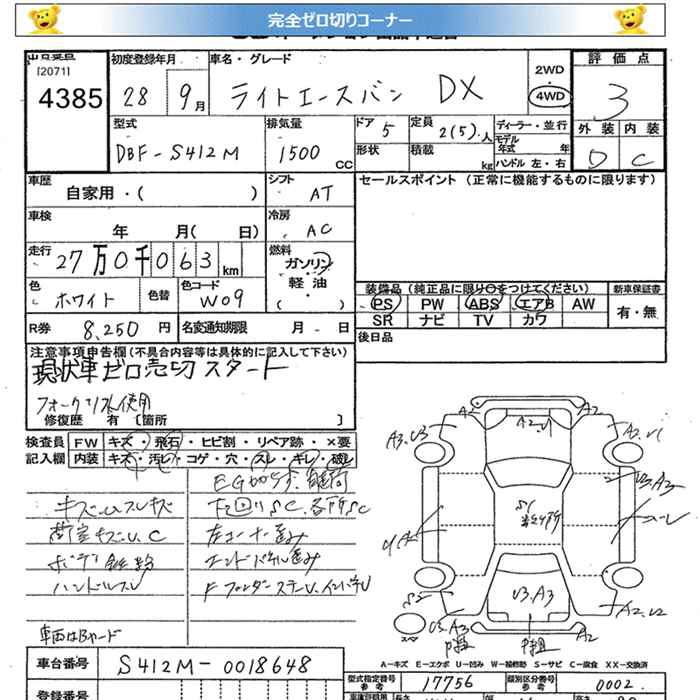 完全ゼロ切りコーナー
[2071]
4385
初度登録年月
28 9月
車名・グレード
ライトエースバン DX
2WD
4WD
評価点
3
外装 内装
D C
型式
DBF-S412M
排気量
1500 CC
ドア 5
形状
定員 2(5)人
積載 kg
ディーラー・並行
モデル年式 年
ハンドル 左・右
車歴
自家用・( )
シフト AT
セールスポイント (正常に機能するものに限ります)
車検
年 月( 日)
冷房 AC
走行
27万0千063km
燃料
ガソリン
軽油
( )
色 ホワイト
色替
色コード W09
装備品 (純正品に限り○をつけてください)
新車保証書
PS PW ABS エアB AW
SR ナビ TV カワ
有・無
R券 8,250円
名変通知期限 月 日
後日品
注意事項申告欄(不具合内容等は具体的に記入して下さい)
現状車ゼロ売切スタート
フォークリフト使用
修復歴 有 〔箇所 〕
検査員記入欄
FW キズ・飛石・ヒビ割・リペア跡・×要
内装 キズ・汚レ・コゲ・穴・スレ・キレ・破レ
キズUスレキズ
荷室キズU、C
下回りS、各所SC
左コーナー歪み
ハンドルスレ
車両はBヤード
A2
A2,U1
A3,U3
A2,U1
U3,A3
S2
U3,A3
U3,A3
A2,U2
A2
スペア
A-キズ E-エクボ U-凹み W-補修跡 S-サビ C-腐食 XX-交換済
車台番号 S412M-0018648
型式指定番号 参考 17756
類別区分番号 参考 0002
登録番号